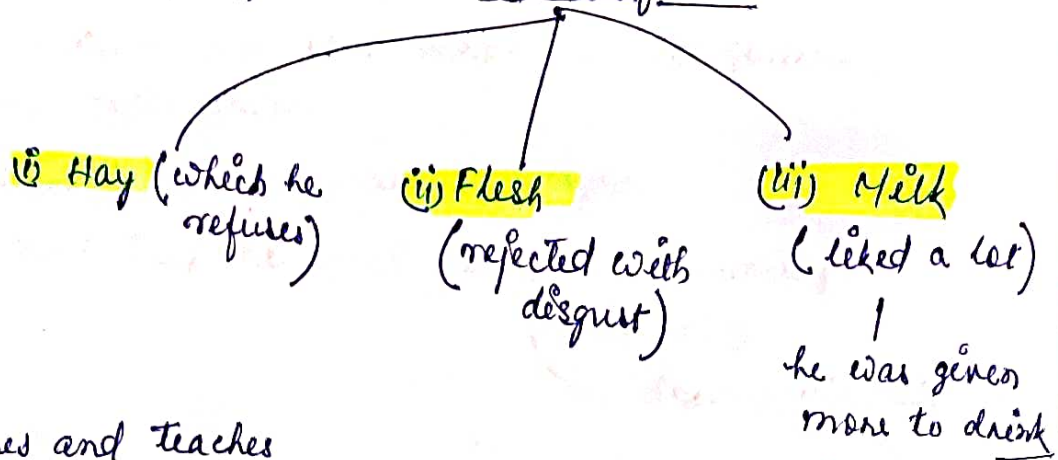 (i) Hay (which he
refuses)
(ii) Flesh
(rejected with
disgust)
(iii) Milk
(liked a lot)
he was given
more to drink
and teaches